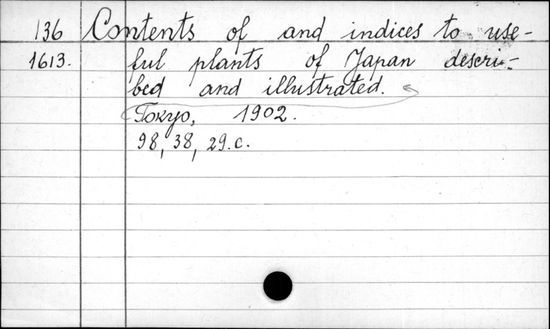 136 Contents of and indices to use-
1613. ful plants of Japan descri-
bed and illustrated.
Tokyo, 1902.
98, 38, 29.c.